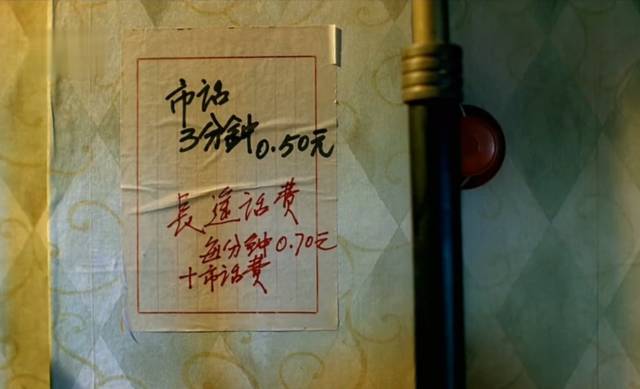 市话
3分鈡0.50元
長途话费
每分钟0.70元
+市话费